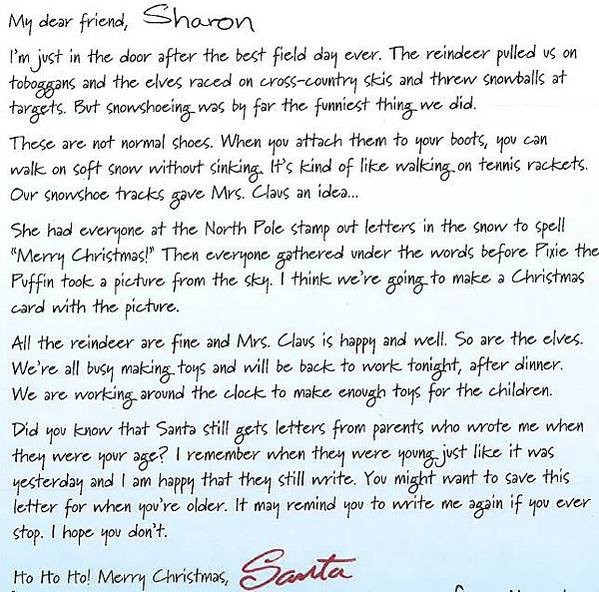 My dear friend, Sharon
I'm just in the door after the best field day ever. The reindeer pulled us on
toboggans and the elves raced on cross-country skis and threw snowballs at
targets. But snowshoeing was by far the funniest thing we did.
These are not normal shoes. When you attach them to your boots, you can
walk on soft snow without sinking. It's kind of like walking on tennis rackets.
Our snowshoe tracks gave Mrs. Claus an idea...
She had everyone at the North Pole stamp out letters in the snow to spell
"Merry Christmas!" Then everyone gathered under the words before Pixie the
Puffin took a picture from the sky. I think we're going to make a Christmas
card with the picture.
All the reindeer are fine and Mrs. Claus is happy and well. So are the elves.
We're all busy making toys and will be back to work tonight, after dinner.
We are working around the clock to make enough toys for the children.
Did you know that Santa still gets letters from parents who wrote me when
they were your age? I remember when they were young just like it was
yesterday and I am happy that they still write. You might want to save this
letter for when you're older. It may remind you to write me again if you ever
stop. I hope you don't.
Ho Ho Ho! Merry Christmas, Santa